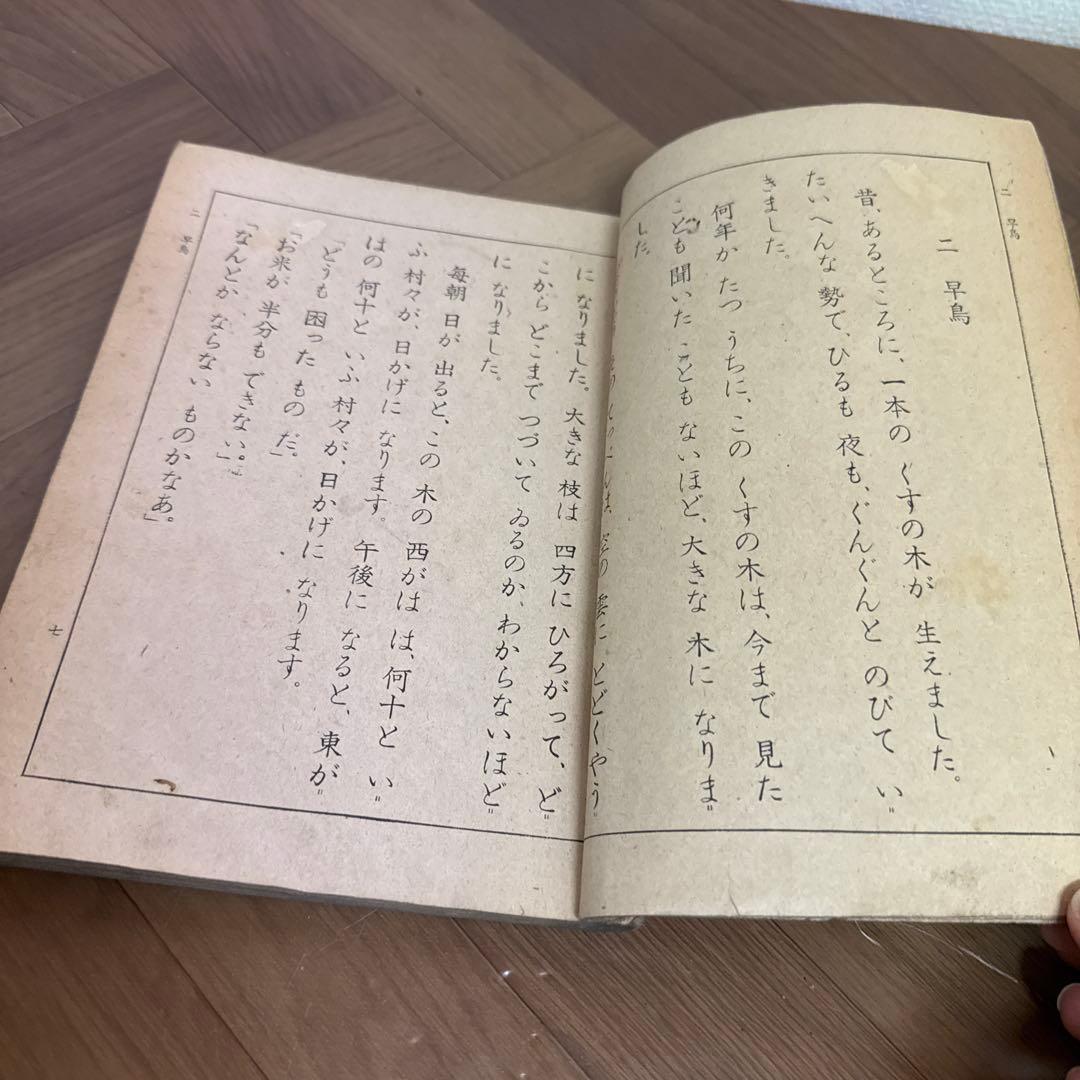 二 早鳥
二 早鳥
昔、あるところに、一本の くすの木が 生えました。
たいへんな 勢で、ひるも 夜も、ぐんぐんと のびて い゠
きました。
何年か たつ うちに、この くすの木は、今まで 見た
ことも 聞いた ことも ないほど、大きな 木に なりま゠
した。
空の 雲に とどくやう゠
に なりました。大きな 枝は 四方に ひろがって、ど゠
こから どこまで つづいて ゐるのか、わからないほど゠
に なりました。
毎朝 日が 出ると、この 木の 西がは は、何十と い゠
ふ 村々が、日かげに なります。午後に なると、東が゠
はの 何十と いふ 村々が、日かげに なります。
「どうも 困った もの だ。」
「お米が 半分も できない。」
「なんとか、ならない ものかなあ。」
二 早鳥
七